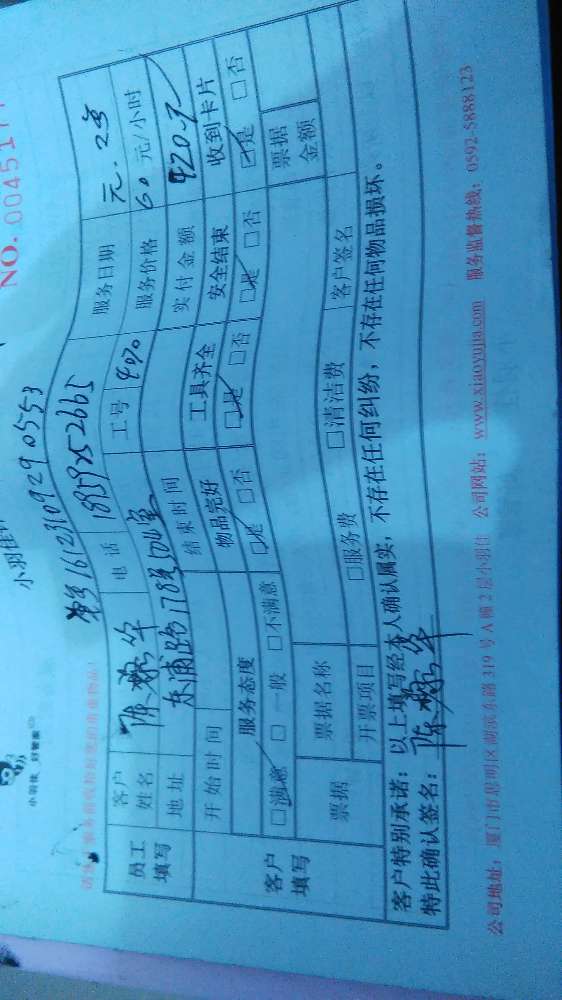 小羽佳
NO. 004517
小羽佳 好管家
单号16123109290553
员工填写
客户姓名 陈 华 电话 18959252665 服务日期 元.2号
地址 东浦路178号104室 工号 4070 服务价格 60元/小时
开始时间 结束时间 实付金额 420元
客户填写
服务态度 物品完好 工具齐全 安全结束 收到卡片
☑满意 □一般 □不满意 ☑是 □否 ☑是 □否 ☑是 □否 ☑是 □否
票据 票据名称 票据金额
开票项目 □服务费 □清洁费 客户签名
客户特别承诺:以上填写经本人确认属实,不存在任何纠纷,不存在任何物品损坏。
特此确认签名: 陈 华
公司地址:厦门市思明区湖滨东路319号A幢2层小羽佳 公司网站:www.xiaoyujia.com 服务监督热线:0592-5888123